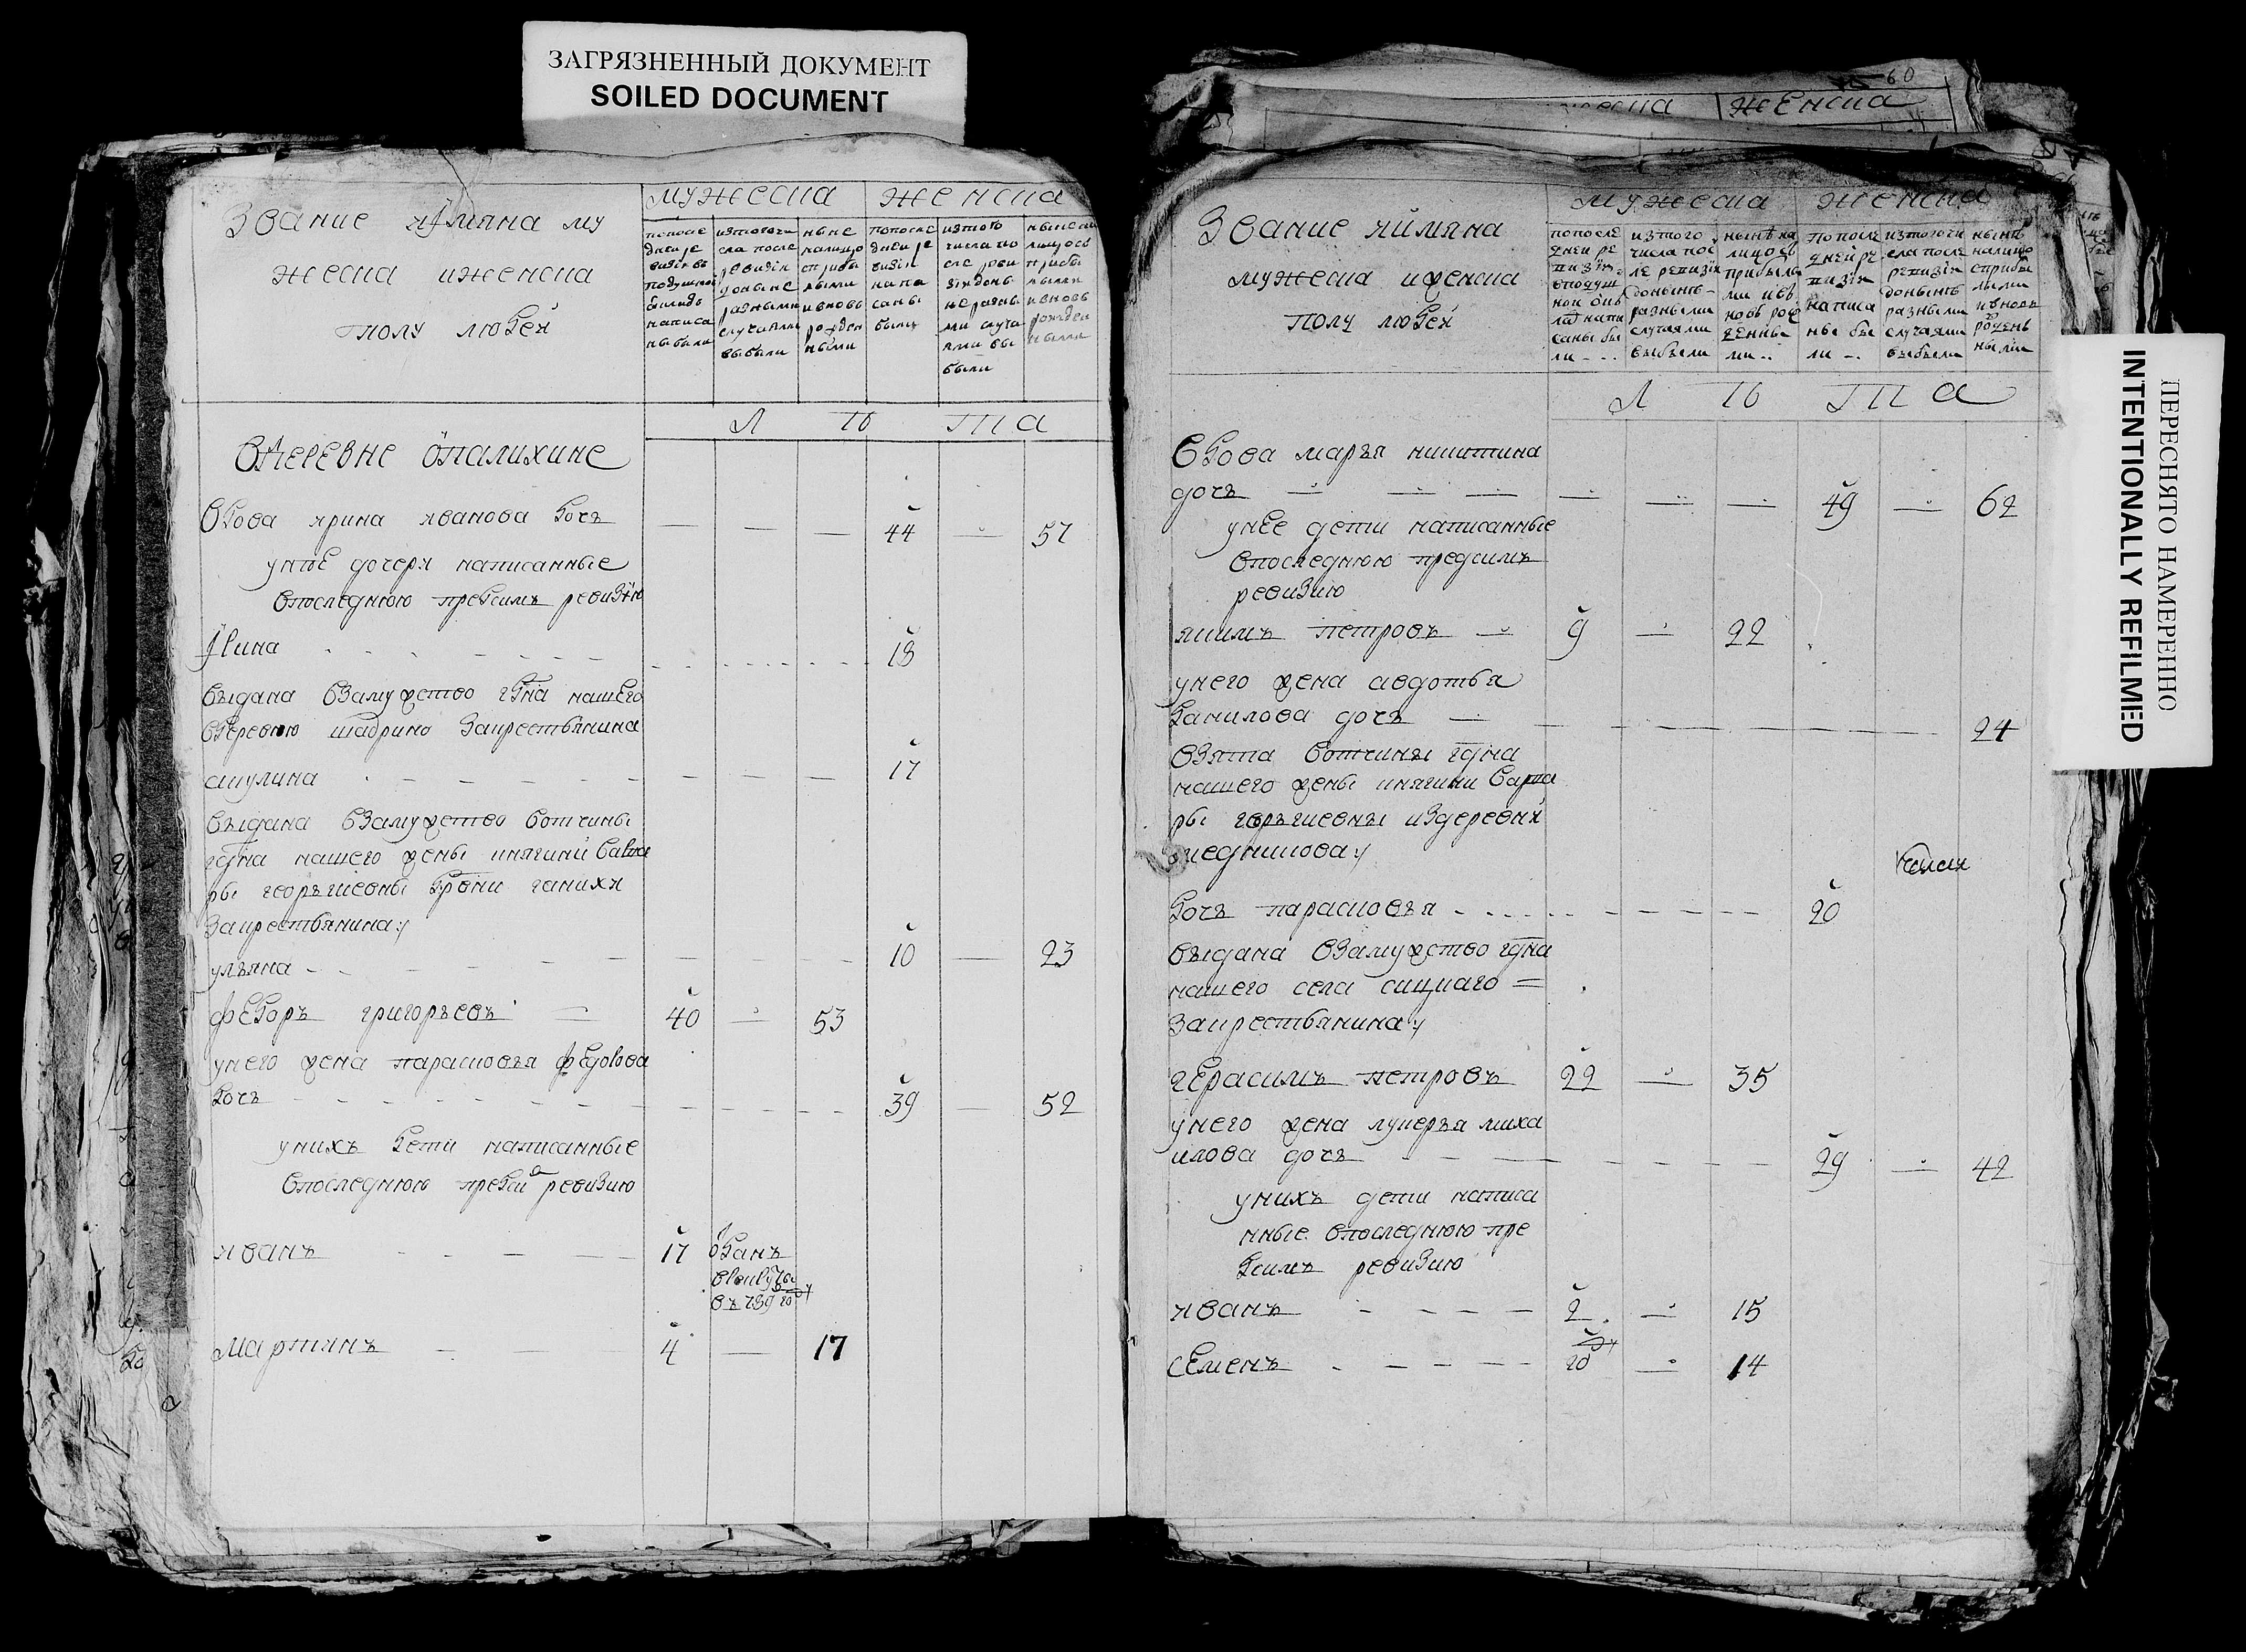 ЗАГРЯЗНЕННЫЙ ДОКУМЕНТ
SOILED DOCUMENT
Звание иимяна му
жеска иженска
полу людей
мужеска женска
попосле
дней ре
визiи въ
подушной
окладъ
написа
ны были
изтогочи
сла после
ревизiи
доныне
разными
случаями
выбыли
ныне
налицо
сприбы
лыми
ивновь
рожден
ными
попосле
дней ре
визiи
напи
саны
были
изтого
числа по
сле реви
зiи доны
не разны
ми случа
ями вы
были
ныне на
лицо съ
прибы
лыми
ивновь
рожден
ными
Л ѣ т а
Вдеревне опалихине
Вдова ирина иванова дочь — — — 44 — 57
унѣе дочеря написанные
Впоследнюю предсимъ ревизiю
Акилина 18
выдана Взамужство гдна нашего
Вдеревню шадрино Закрестьянина
акулина — — — — 17
выдана Взамужство вотчины
гдна нашего жены княгини Варва
ры георъгиевны вдрвни ганихи
Закрестьянина
ульяна — — — 10 — 23
федоръ григорьевъ — 40 — 53
унего жена парасковья федорова
дочь — — — 39 — 52
унихъ дети написанные
Впоследнюю предси ревизию
иванъ — — 17 отданъ
врекруты
въ 789 году
мартинъ — 4 — 17
60
женска
Звание иимяна
мужеска иженска
полу людей
мужеска женска
попосле
дней ре
визiи
вподуш
ной окла
дъ напи
саны бы
ли
изтого
числа пос
ле ревизiи
донынѣ
разными
случаями
выбыли
нынѣ на
лицо съ
прибылы
ми ивъ
новь рож
денны
ми
попосле
дней ре
визiи
написа
ны бы
ли
изтогочи
сла после
ревизiи
донынѣ
разными
случаями
выбыли
нынѣ
налицо
сприбы
лыми
ивновь
рожден
ными
Л ѣ т а
Вдова марья никитина
дочь — — — — — — 49 — 62
унее дети написанные
Впоследнюю предсимъ
ревизию
якимъ петровъ — 9 — 22
унего жена авдотья
данилова дочь — — — 24
Взята вотчины гдна
нашего жены княгини Варва
ры георъгиевны издеревни
медникова
дочь парасковья — — — 20
выдана Взамужство гдна
нашего села сицкаго
Закрестьянина
герасимъ петровъ 22 — 35
унего жена лукерья миха
илова дочь — — — 29 — 42
унихъ дети написа
нные впоследнюю пре
дсимъ ревизию
иванъ — — 2 — 15
семенъ — — году — 14
ПЕРЕСНЯТО НАМЕРЕННО
INTENTIONALLY REFILMED